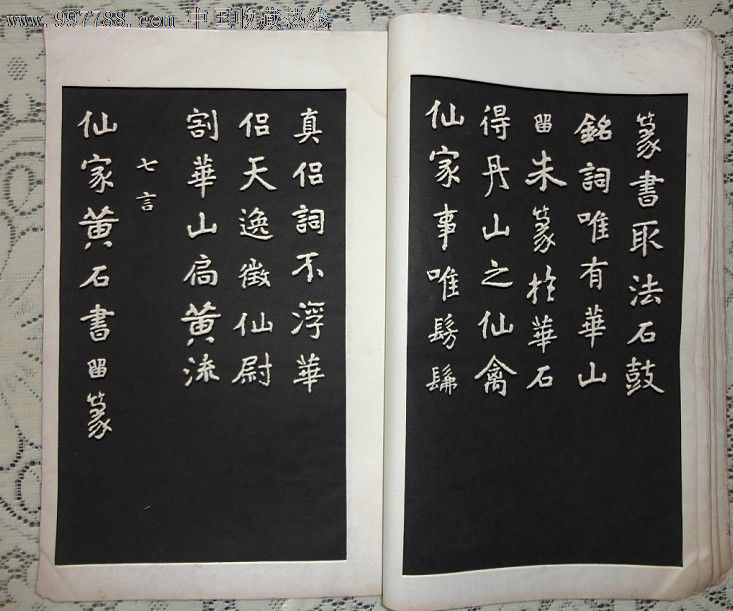 www.997788.com 中国收藏热线
篆書取法石鼓
銘詞唯有華山
留朱篆於華石
得丹山之仙禽
仙家事唯髣髴
真侣詞不浮華
侣天逸徵仙尉
割華山扁黄流
七言
仙家黄石書留篆